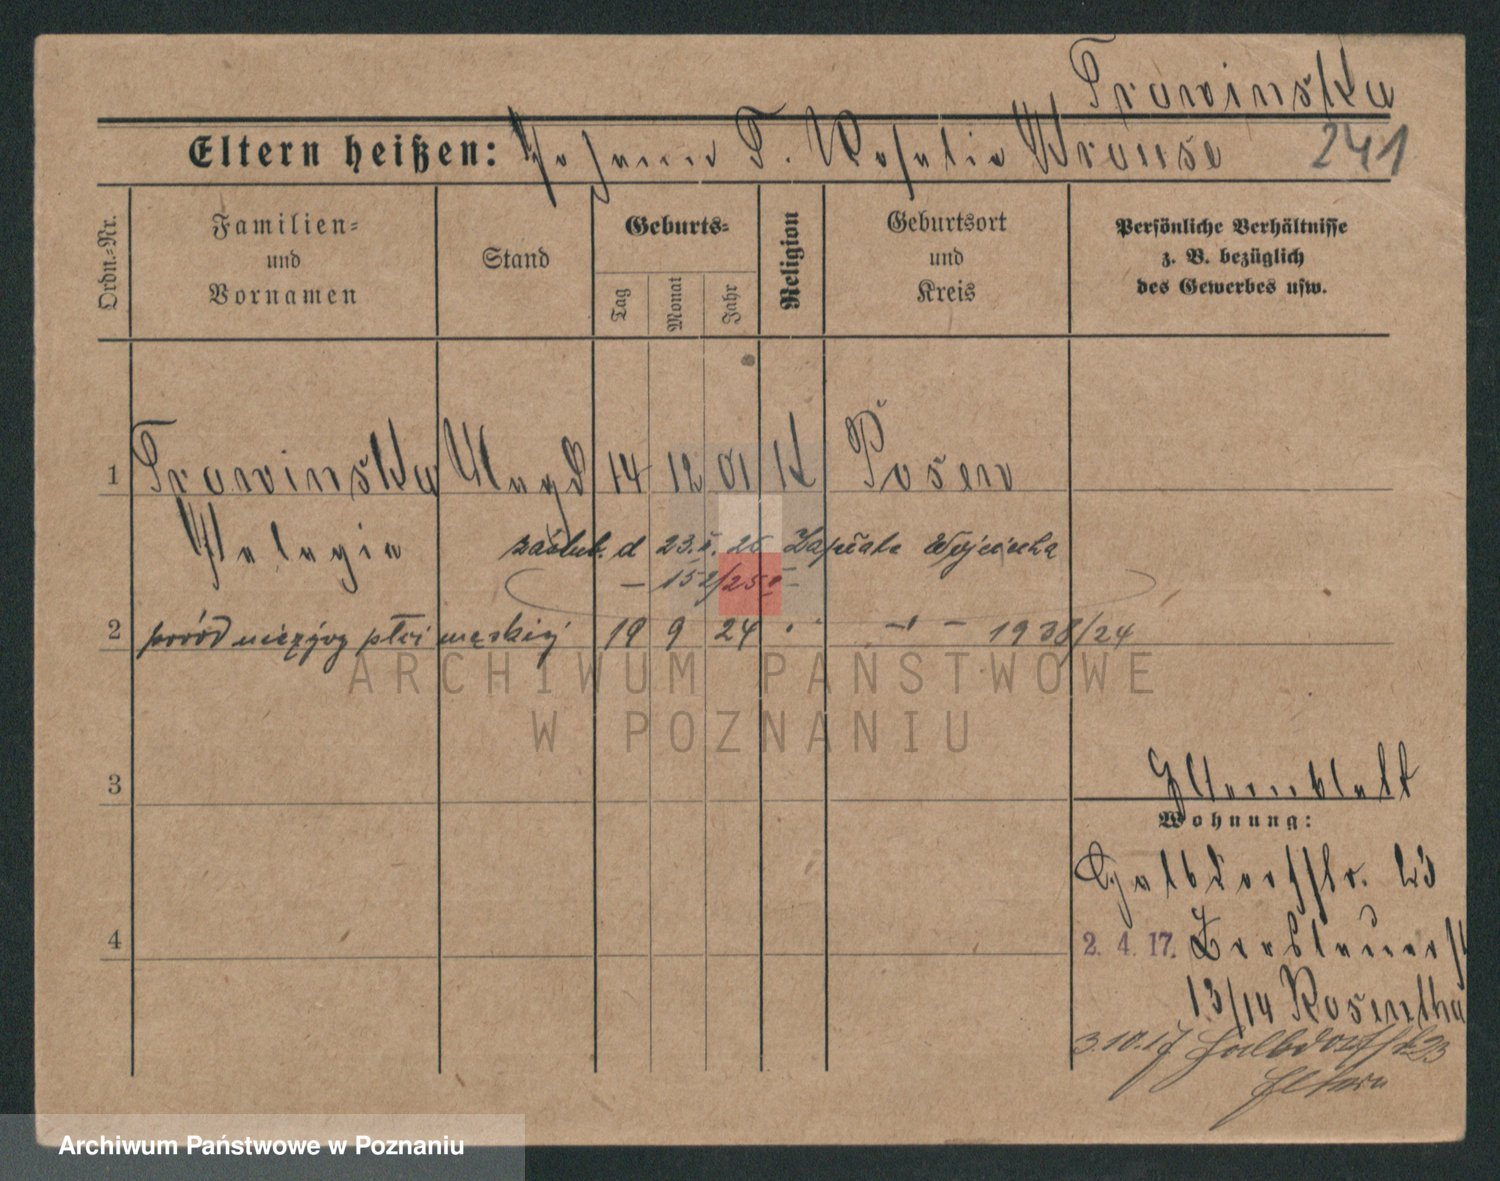 Trawinska
Eltern heißen: Johann T. Rosalie Krause 241
Ordn.-Nr.
Familien- und Vornamen
Stand
Geburts-
Tag
Monat
Jahr
Religion
Geburtsort und Kreis
Persönliche Verhältnisse
z. B. bezüglich
des Gewerbes usw.
1 Trawinska Magd 14 12 01 K Posen
Pelagia
zaślub. d 23.5.26 Wojciecha
152/25
2 poród nieżywy płci męskiej 19 9 24 1938/24
ARCHIWUM PAŃSTWOWE
W POZNANIU
3
Elternblatt
Wohnung:
Halbdorfstr. 23
4
2. 4. 17.
13/14 Rosentha
3.10.17 Halbdorfstr 23
Eltern
Archiwum Państwowe w Poznaniu